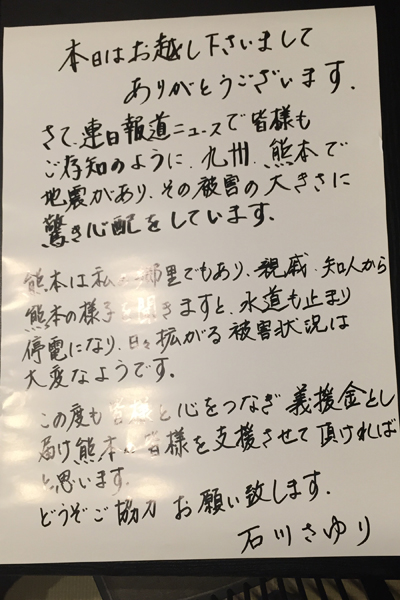 本日はお越し下さいまして
ありがとうございます.
さて、連日報道ニュースで皆様も
ご存知のように、九州、熊本で
地震があり、その被害の大きさに
驚き心配をしています.
熊本は私の郷里でもあり、親戚、知人から
熊本の様子を聞きますと、水道も止まり
停電になり、日々拡がる被害状況は
大変なようです.
この度も皆様と心をつなぎ義援金とし
届け熊本の皆様を支援させて頂ければ
と思います.
どうぞご協力お願い致します.
石川さゆり